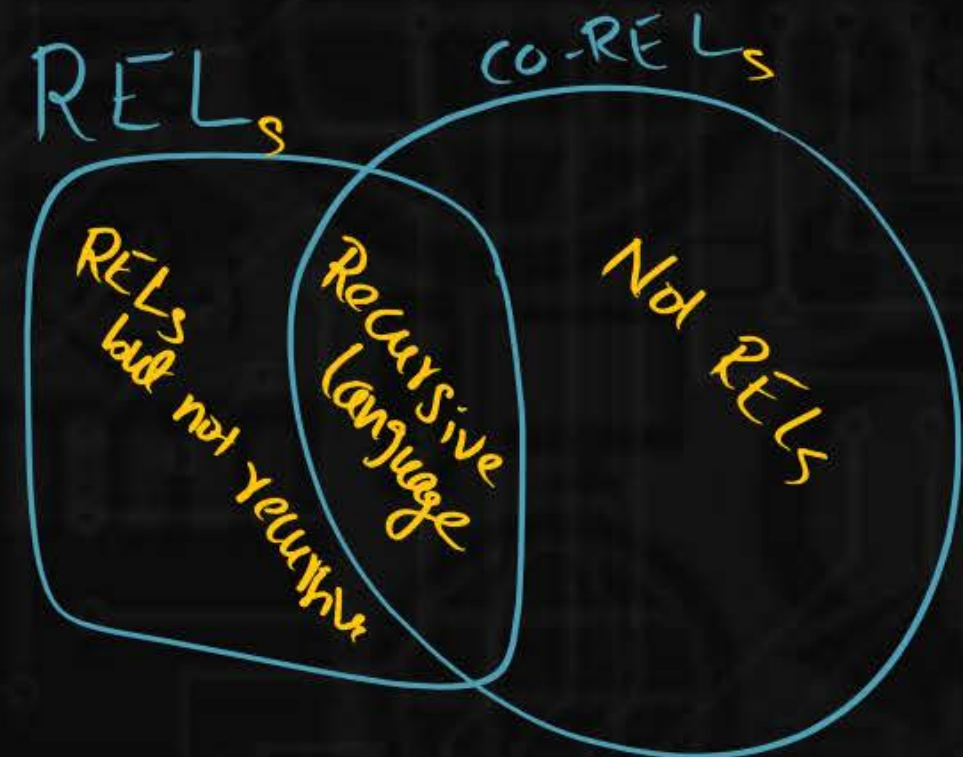 RELs
co-RELs
RELs
but not recursive
Recursive
language
Not RELs